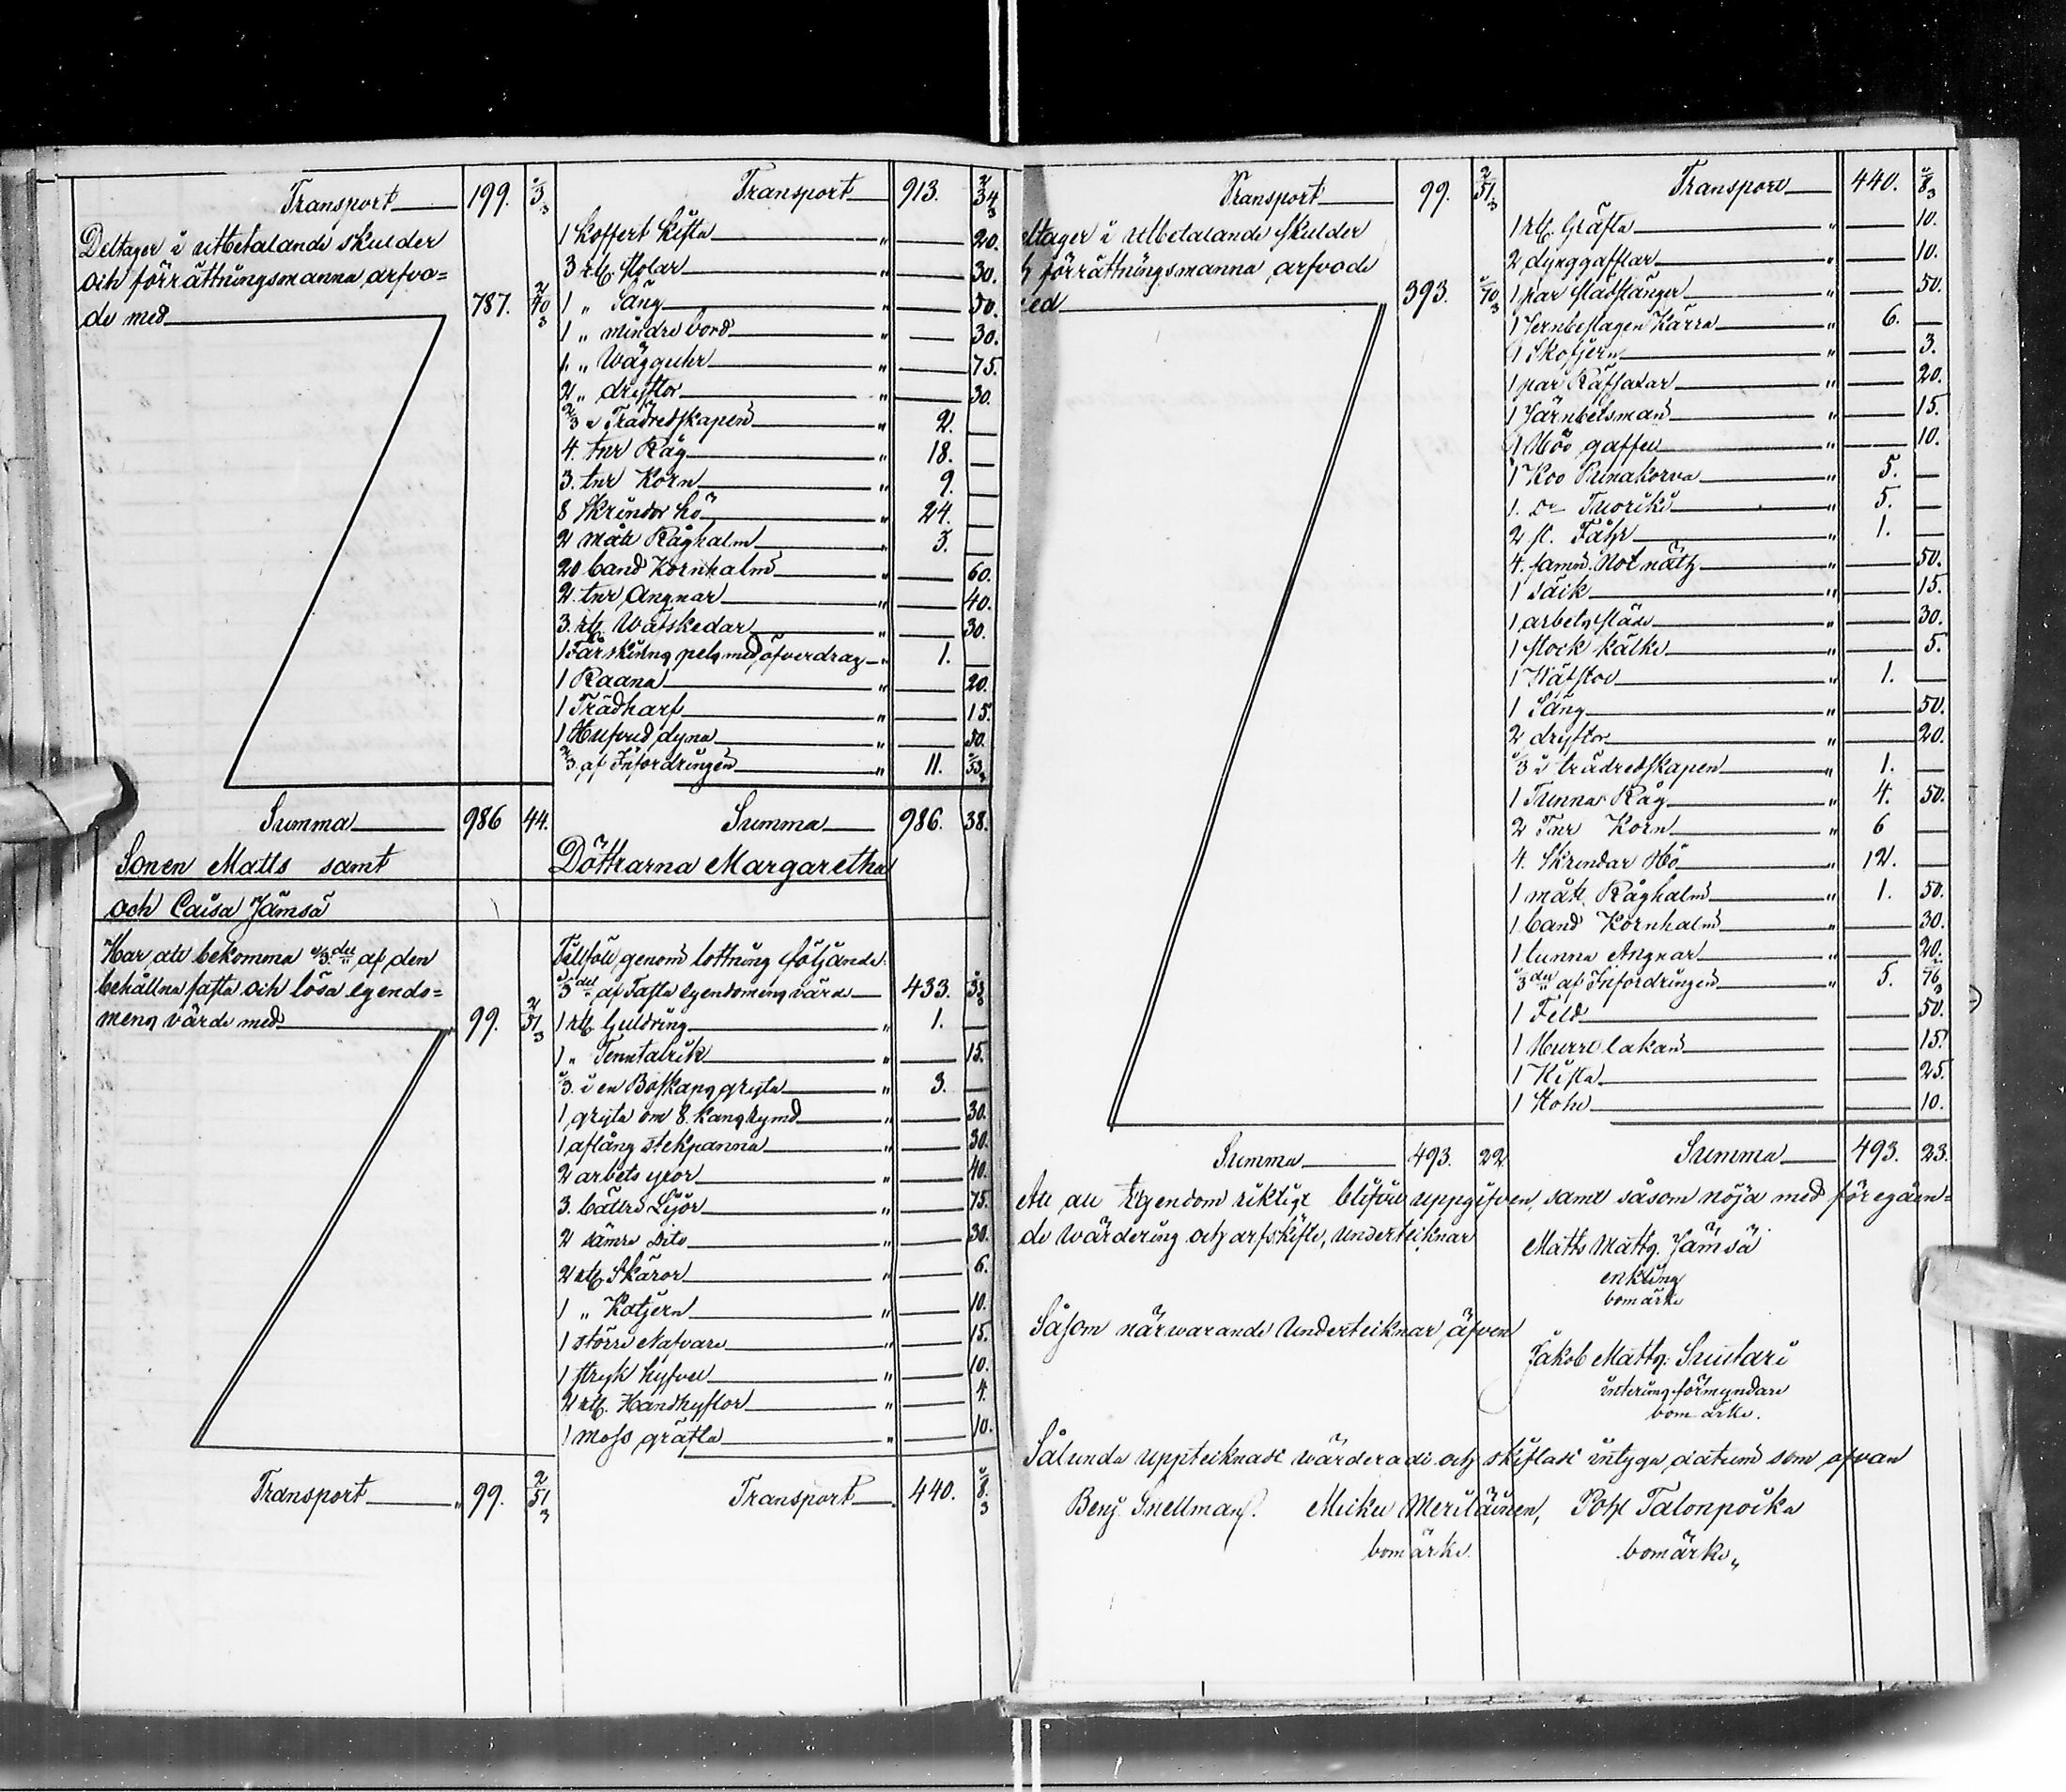 Transport 199. 1/3
Deltager i utbetalande skulder
och förrättningsmanna arfvo=
de med 787. 40 2/3
Transport 913. 34 2/3
1 Koffert Kista " 20.
3 st. Stolar " 30.
1 " Säng " 50.
1 " mindre bord " 30.
1 " Wägguhr " 75.
2 " dryftor " 30.
2/3 i Trädredskapen " 2.
4. tnr Råg " 18.
3. tnr Korn " 9.
8 Skrindor hö " 24.
2 mått Råghalm " 3.
20 band Kornhalm " 60.
2. tnr Angnar " 40.
3. st. Wäfskedar " 30.
1 Fårskinns pels med öfverdrag " 1.
1 Raana " 20.
1 Trädharf " 15.
1 Hufvud dyna " 50.
2/3 af Infordringen " 11. 53 1/3
Summa 986 44.
Summa 986. 38.
Sonen Matts samt Döttrarna Margaretha
och Caisa Jämsä
Har att bekomma 1/3 del af den
behållna fasta och lösa egendo=
mens värde med 99. 51 2/3
Tillföll genom lottning följande:
1/3 del af Fasta egendomens värde 433. 33 1/3
1 st. Guldring " 1.
1 " Tenntalrik " 15.
1/3 i en Boskaps gryta " 3.
1 gryta om 8. kans rymd " 30.
1 aflång stekpanna " 30.
2 arbets yxor " 40.
3. bättre Lijor " 75.
2 sämre dito " 30.
2 st. Skäror " 6.
1 " Katjern " 10.
1 större Nafvare " 15.
1 stryk hyfvel " 10.
2 st. Handhyflor " 4.
1 moss gräfta " 10.
Transport " 99. 51 2/3
Transport 440. 8 1/3
Transport 99. 51 2/3
ltager i utbetalande skulder
h förrättningsmanna arfvode
ed 393. 70 1/3
Transport 440. 8 1/3
1 st. Gräfta " 10.
2 dynggafflar " 10.
1 par stadstänger " 50.
1 Jernbeslagen Kärra " 6.
1 Skofjern " 3.
1 par Räfsaxar " 20.
1 Järnbetsman " 15.
1 Höö gaffel " 10.
1 Koo Punakorva " 5.
1. do Tuoriki " 5.
2 st. Fåhr " 1.
4. famn. Not näth " 50.
1 Säik " 15.
1 arbets släde " 30.
1 stock kälke " 5.
1 Wäfstol " 1.
1 Säng " 50.
2 dryftor " 20.
1/3 i trädredskapen " 1.
1 Tunna Råg " 4. 50.
2 Tnr Korn " 6
4. Skrindar Hö " 12.
1 mått Råghalm " 1. 50.
1 band Kornhalm " 30.
1 tunna Angnar " 20.
1/3 del af Infordringen " 5. 76 2/3
1 Fäld 50.
1 Hurre lakan 15.
1 Kista 25.
1 Stohl 10.
Summa 493. 22
Summa 493. 23.
Att all Egendom riktigt blifvit uppgifven, samt såsom nöja med föregåen=
de wärdering och arfskifte, undertecknar
Matts Matts. Jämsä
enkling
bomärke
Såsom närwarande Undertecknar äfven
Jakob Matts. Suutari
interims förmyndare
bomärke.
Sålunda upptecknade wärderade och skiftade intyga, datum som ofvan
Benj. Snellman. Mickel Meriläinen, Pohl Talonpoika
bomärke. bomärke.